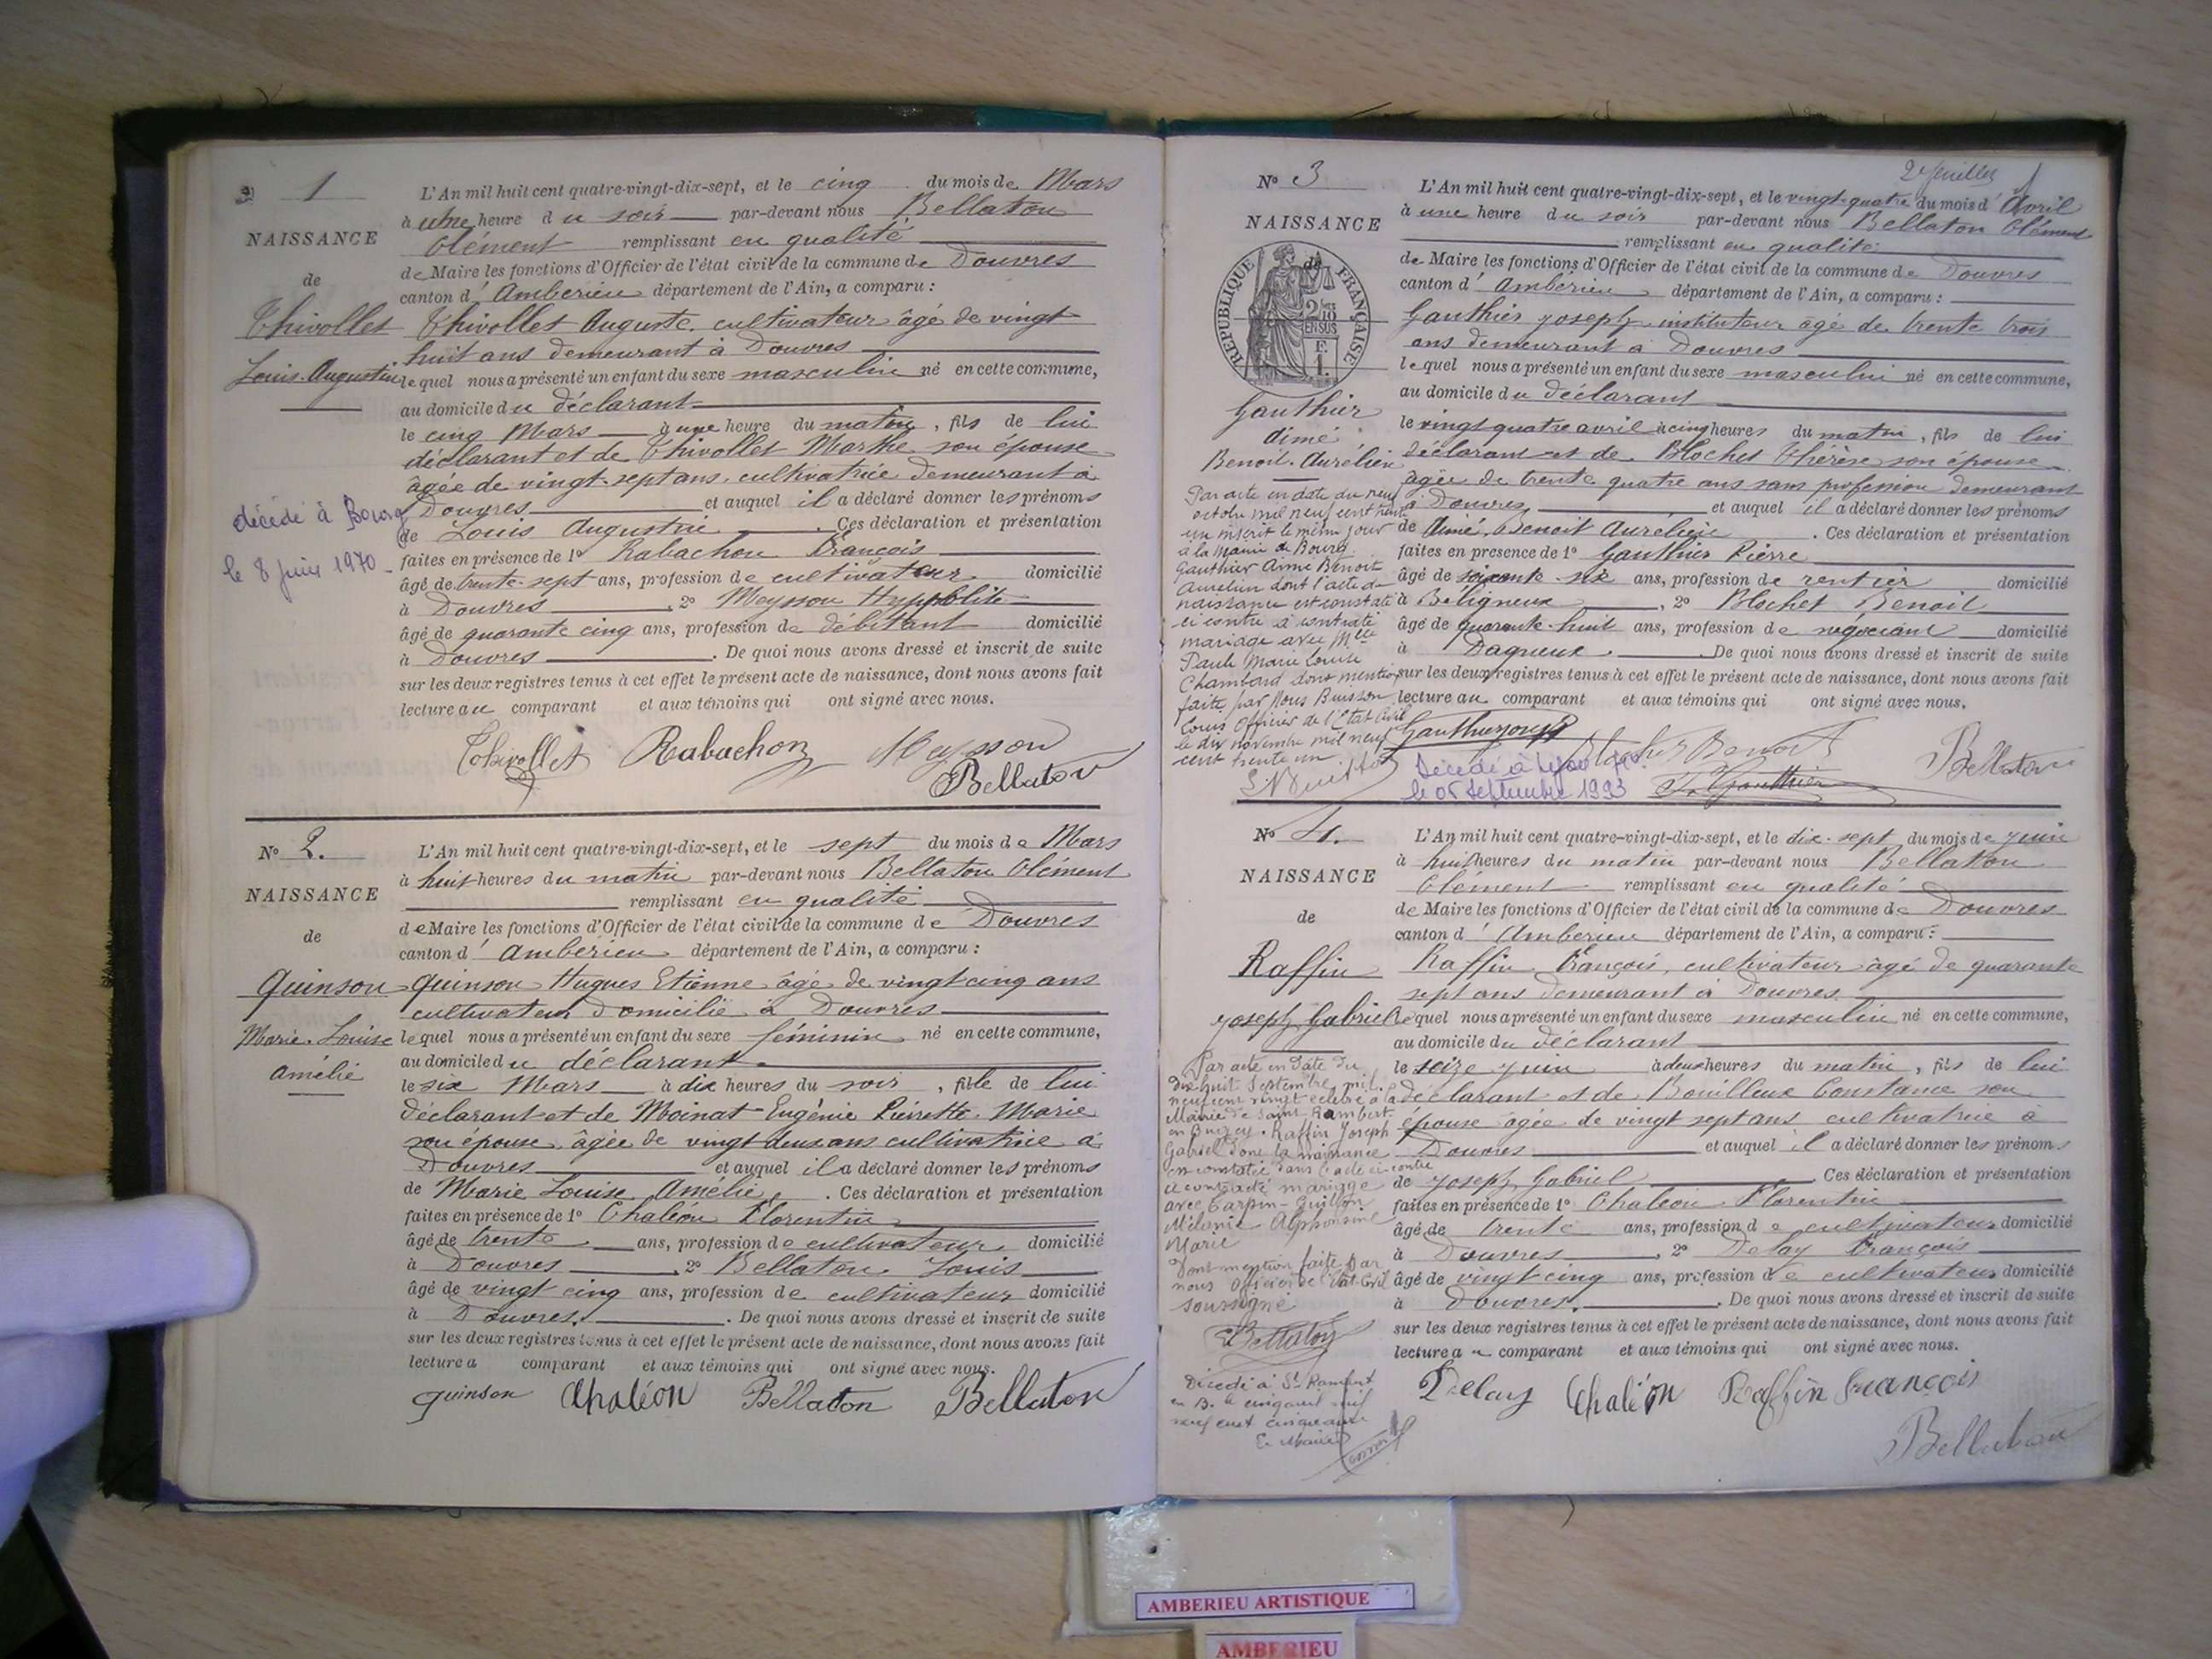 N° 1
NAISSANCE
de
Thivollet
Louis Augustin
décédé à Bourg
le 8 juin 1970
L'An mil huit cent quatre-vingt-dix-sept, et le cinq du mois de Mars
à une heure du soir par-devant nous Bellaton
Clément remplissant en qualité
de Maire les fonctions d'Officier de l'état civil de la commune de Douvres
canton d'Ambérieu département de l'Ain, a comparu :
Thivollet Auguste, cultivateur âgé de vingt
huit ans demeurant à Douvres
lequel nous a présenté un enfant du sexe masculin né en cette commune,
au domicile du déclarant
le cinq Mars à une heure du matin, fils de lui
déclarant et de Thivollet Marthe son épouse
âgée de vingt-sept ans, cultivatrice demeurant à
Douvres et auquel il a déclaré donner les prénoms
de Louis Augustin . Ces déclaration et présentation
faites en présence de 1° Rabachon François
âgé de trente-sept ans, profession de cultivateur domicilié
à Douvres , 2° Meysson Hyppolite
âgé de quarante cinq ans, profession de débitant domicilié
à Douvres . De quoi nous avons dressé et inscrit de suite
sur les deux registres tenus à cet effet le présent acte de naissance, dont nous avons fait
lecture au comparant et aux témoins qui ont signé avec nous.
Thivollet Rabachon Meysson
Bellaton
N° 2.
NAISSANCE
de
Quinson
Marie Louise
Amélie
L'An mil huit cent quatre-vingt-dix-sept, et le sept du mois de Mars
à huit heures du matin par-devant nous Bellaton Clément
remplissant en qualité
de Maire les fonctions d'Officier de l'état civil de la commune de Douvres
canton d'Ambérieu département de l'Ain, a comparu :
Quinson Hugues Etienne âgé de vingt cinq ans
cultivateur domicilié à Douvres
lequel nous a présenté un enfant du sexe féminin né en cette commune,
au domicile du déclarant
le six Mars à dix heures du soir, fille de lui
déclarant et de Moinat Eugénie Pierrette Marie
son épouse, âgée de vingt deux ans cultivatrice à
Douvres et auquel il a déclaré donner les prénoms
de Marie Louise Amélie . Ces déclaration et présentation
faites en présence de 1° Chaléon Florentin
âgé de trente ans, profession de cultivateur domicilié
à Douvres , 2° Bellaton Louis
âgé de vingt cinq ans, profession de cultivateur domicilié
à Douvres. . De quoi nous avons dressé et inscrit de suite
sur les deux registres tenus à cet effet le présent acte de naissance, dont nous avons fait
lecture a comparant et aux témoins qui ont signé avec nous.
Quinson Chaléon Bellaton Bellaton
2e feuillet
N° 3
NAISSANCE
de
RÉPUBLIQUE FRANÇAISE
EN SUS
Gauthier
Aimé
Benoit-Aurélien
Par acte en date du neuf
octobre mil neuf cent trente
un inscrit le même jour
à la Mairie de Bourg
Gauthier Aimé Benoit
Aurélien dont l'acte de
naissance est constaté
ci contre a contracté
mariage avec Mlle
Paule Marie Louise
Chambard dont mention
faite par Nous Buisson
Louis Officier de l'Etat Civil
le dix novembre mil neuf
cent trente un
L'An mil huit cent quatre-vingt-dix-sept, et le vingt-quatre du mois d'Avril
à une heure du soir par-devant nous Bellaton Clément
remplissant en qualité
de Maire les fonctions d'Officier de l'état civil de la commune de Douvres
canton d'Ambérieu département de l'Ain, a comparu :
Gauthier Joseph instituteur âgé de trente trois
ans demeurant à Douvres
lequel nous a présenté un enfant du sexe masculin né en cette commune,
au domicile du déclarant
le vingt quatre avril à cinq heures du matin, fils de lui
déclarant et de Blochet Thérèse son épouse
âgée de trente quatre ans sans profession demeurant
à Douvres et auquel il a déclaré donner les prénoms
de Aimé, Benoit Aurélien . Ces déclaration et présentation
faites en présence de 1° Gauthier Pierre
âgé de soixante six ans, profession de rentier domicilié
à Béligneux , 2° Blochet Benoit
âgé de quarante-huit ans, profession de négociant domicilié
à Dagneux . De quoi nous avons dressé et inscrit de suite
sur les deux registres tenus à cet effet le présent acte de naissance, dont nous avons fait
lecture au comparant et aux témoins qui ont signé avec nous.
Gauthier Joseph Blochet Benoit Bellaton
Décédé à Lyon
le 05 Septembre 1993 Gauthier
N° 4.
NAISSANCE
de
Raffin
Joseph Gabriel
Par acte en date du
dix huit Septembre mil
neuf cent vingt célébré à la
Mairie de Saint-Rambert
en Bugey, Raffin Joseph
Gabriel dont la naissance
est constatée dans l'acte ci-contre
a contracté mariage
avec Carpin-Guillon
Mélanie Alphonsine
Marie
Dont mention faite par
nous Officier de l'Etat-Civil
soussigné
Bellaton
Décédé à St Rambert
en B. le cinq avril mil
neuf cent cinquante
L'An mil huit cent quatre-vingt-dix-sept, et le dix-sept du mois de Juin
à huit heures du matin par-devant nous Bellaton
Clément remplissant en qualité
de Maire les fonctions d'Officier de l'état civil de la commune de Douvres
canton d'Ambérieu département de l'Ain, a comparu :
Raffin François, cultivateur âgé de quarante
sept ans demeurant à Douvres
lequel nous a présenté un enfant du sexe masculin né en cette commune,
au domicile du déclarant
le seize Juin à deux heures du matin, fils de lui
déclarant et de Bouilleux Constance son
épouse âgée de vingt sept ans cultivatrice à
Douvres et auquel il a déclaré donner les prénoms
de Joseph Gabriel . Ces déclaration et présentation
faites en présence de 1° Chaléon Florentin
âgé de trente ans, profession de cultivateur domicilié
à Douvres , 2° Delay François
âgé de vingt cinq ans, profession de cultivateur domicilié
à Douvres. . De quoi nous avons dressé et inscrit de suite
sur les deux registres tenus à cet effet le présent acte de naissance, dont nous avons fait
lecture au comparant et aux témoins qui ont signé avec nous.
Delay Chaléon Raffin François
Bellaton
AMBERIEU ARTISTIQUE
AMBERIEU